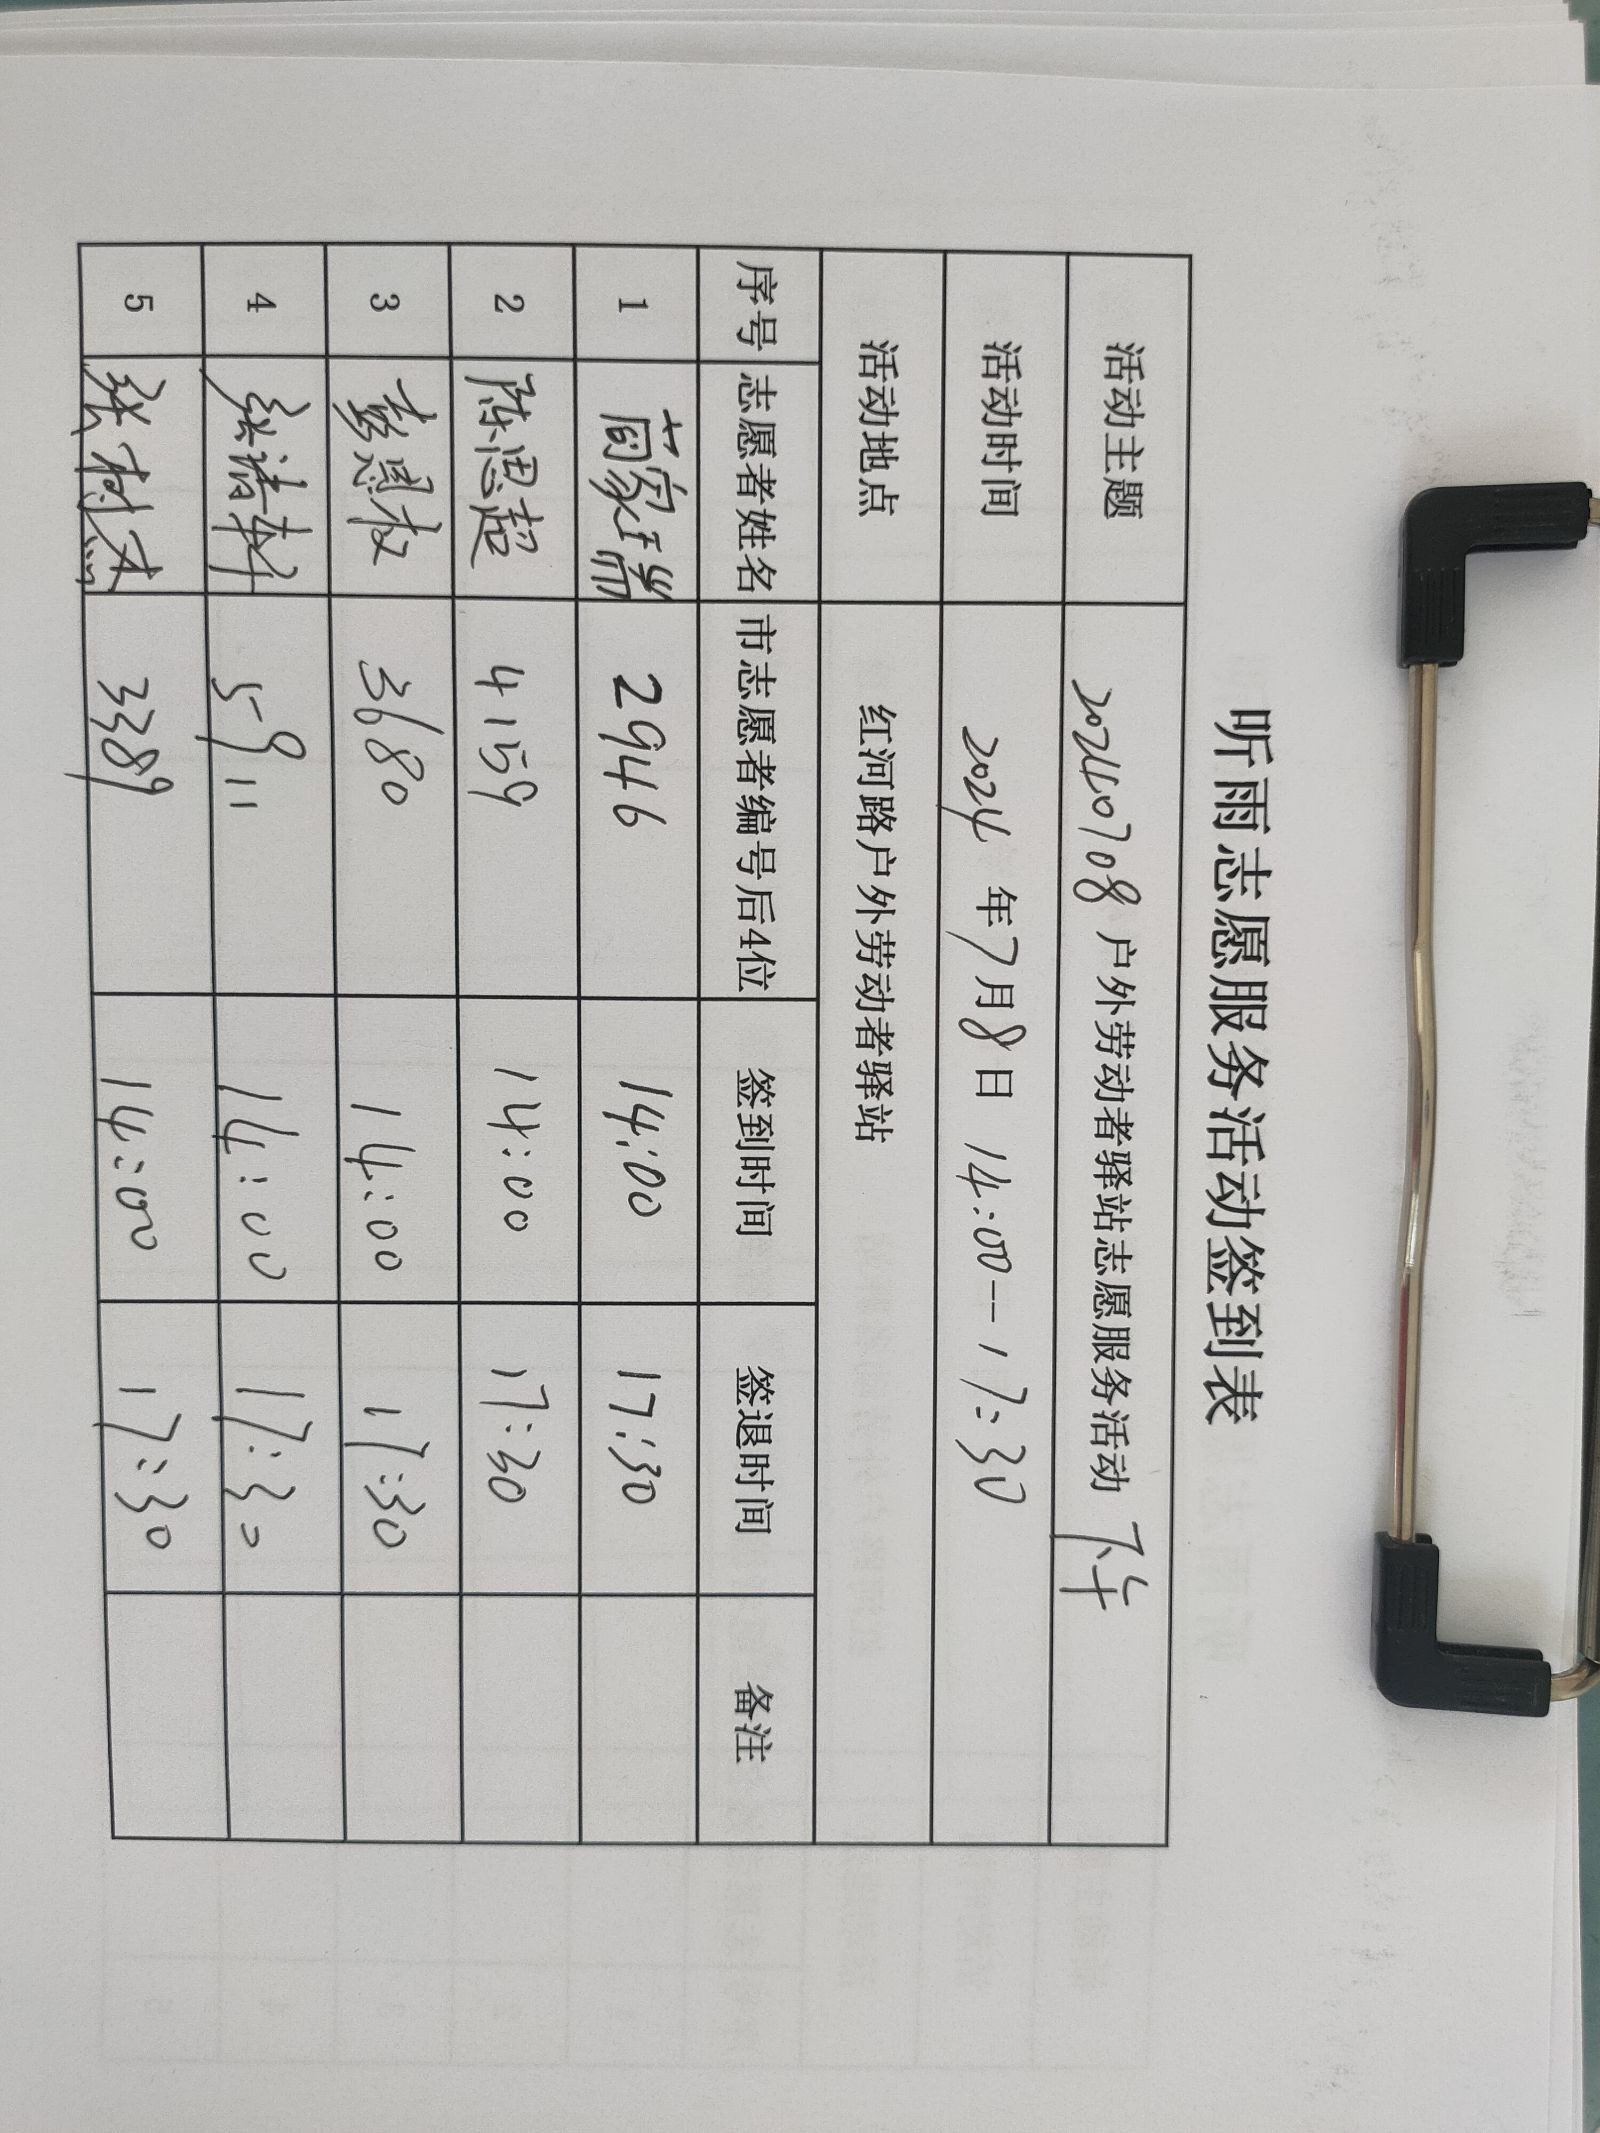 听雨志愿服务活动签到表
活动主题 20240708 户外劳动者驿站志愿服务活动 下午
活动时间 2024 年 7 月 8 日 14:00--17:30
活动地点 红河路户外劳动者驿站
序号 志愿者姓名 市志愿者编号后4位 签到时间 签退时间 备注
1 蔄家瑞 2946 14:00 17:30
2 陈思超 4159 14:00 17:30
3 彭恩权 3680 14:00 17:30
4 张清 5911 14:00 17:30
5 张树杰 3389 14:00 17:30